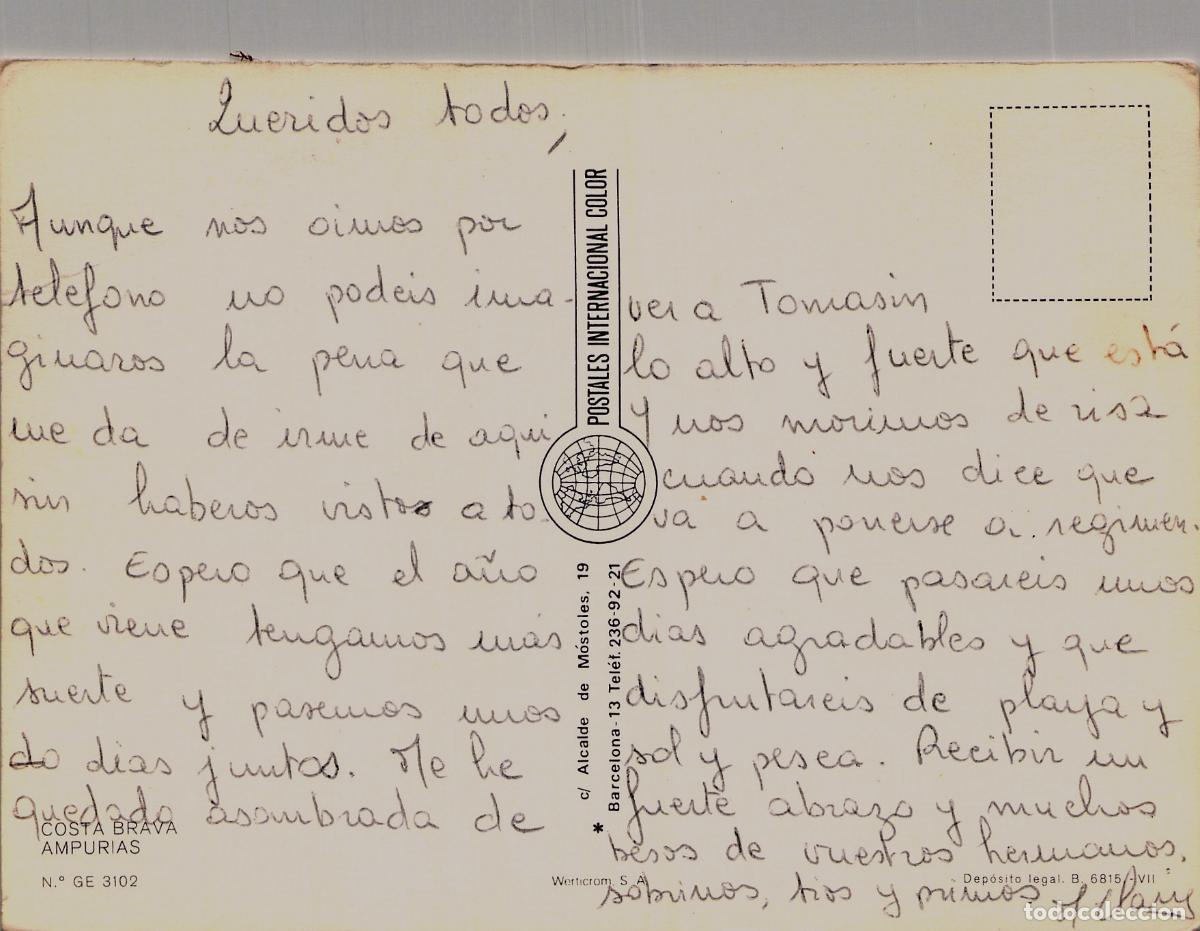 Queridos todos,
Aunque nos oimos por
telefono no podeis ima-
ginaros la pena que
me da de irme de aqui
sin haberos visto a to-
dos. Espero que el año
que viene tengamos más
suerte y pasemos unos
do dias juntos. Me he
quedado asombrada de
COSTA BRAVA
AMPURIAS
N.º GE 3102
POSTALES INTERNACIONAL COLOR
c/ Alcalde de Móstoles, 19
Barcelona-13 Teléf. 236-92-21
*
ver a Tomasin
lo alto y fuerte que está
y nos morimos de risa
cuando nos dice que
va a ponerse a regimen.
Espero que pasareis unos
dias agradables y que
disfrutareis de playa y
sol y pesca. Recibir un
fuerte abrazo y muchos
besos de vuestros hermanos,
sobrinos, tios y primos.
Werticrom, S. A.
Depósito legal. B. 6815 - VII
todocoleccion